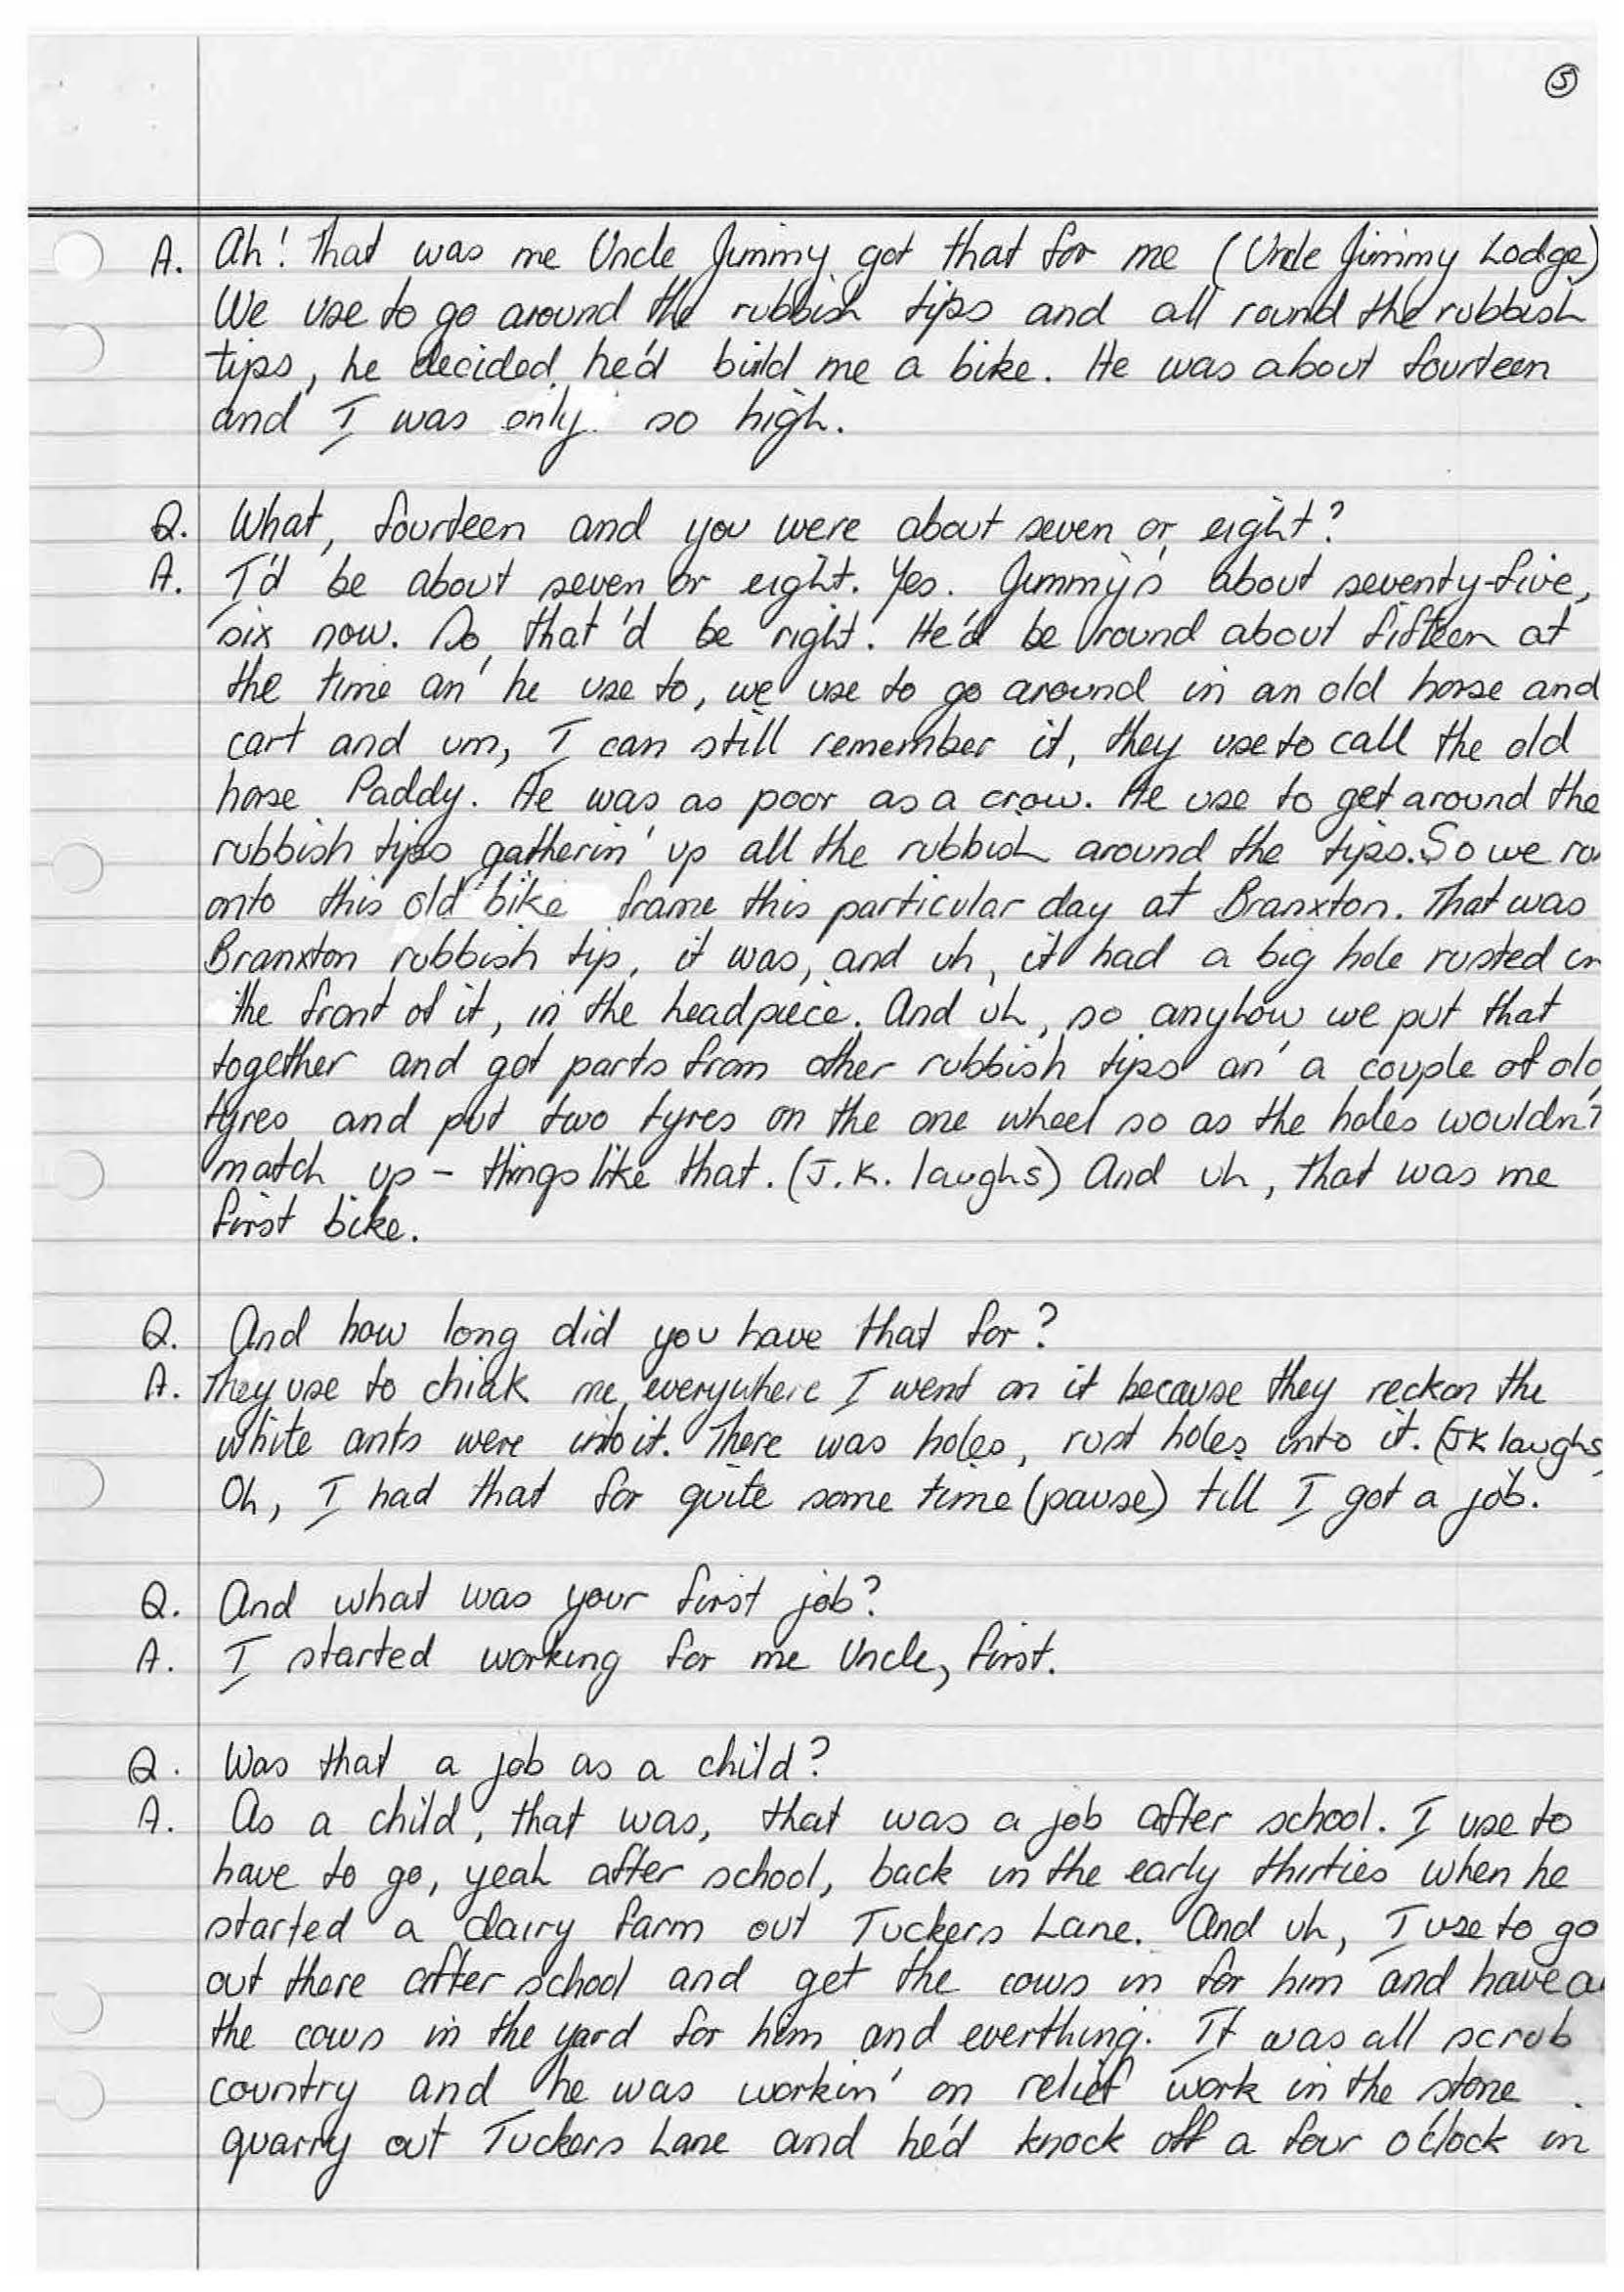 5
A. Ah! That was me Uncle Jimmy got that for me (Uncle Jimmy Lodge)
We use to go around the rubbish tips and all round the rubbish
tips, he decided he'd build me a bike. He was about fourteen
and I was only so high.
Q. What, fourteen and you were about seven or eight?
A. I'd be about seven or eight. Yes. Jimmy's about seventy-five,
six now. So, that'd be right. He'd be round about fifteen at
the time an' he use to, we use to go around in an old horse and
cart and um, I can still remember it, they use to call the old
horse Paddy. He was as poor as a crow. He use to get around the
rubbish tips gatherin' up all the rubbish around the tips. So we
onto this old bike frame this particular day at Branxton. That was
Branxton rubbish tip, it was, and uh, it had a big hole rusted in
the front of it, in the headpiece. And uh, so anyhow we put that
together and got parts from other rubbish tips an' a couple of old
tyres and put two tyres on the one wheel so as the holes wouldn't
match up - things like that. (J.K. laughs) And uh, that was me
first bike.
Q. And how long did you have that for?
A. They use to chiak me, everywhere I went on it because they reckon the
white ants were into it. There was holes, rust holes into it. (JK laughs
Oh, I had that for quite some time (pause) till I got a job.
Q. And what was your first job?
A. I started working for me Uncle, first.
Q. Was that a job as a child?
A. As a child, that was, that was a job after school. I use to
have to go, yeah after school, back in the early thirties when he
started a dairy farm out Tuckers Lane. And uh, I use to go
out there after school and get the cows in for him and have
the cows in the yard for him and everthing. It was all scrub
country and he was workin' on relief work in the stone
quarry out Tuckers Lane and he'd knock off a four o'clock in